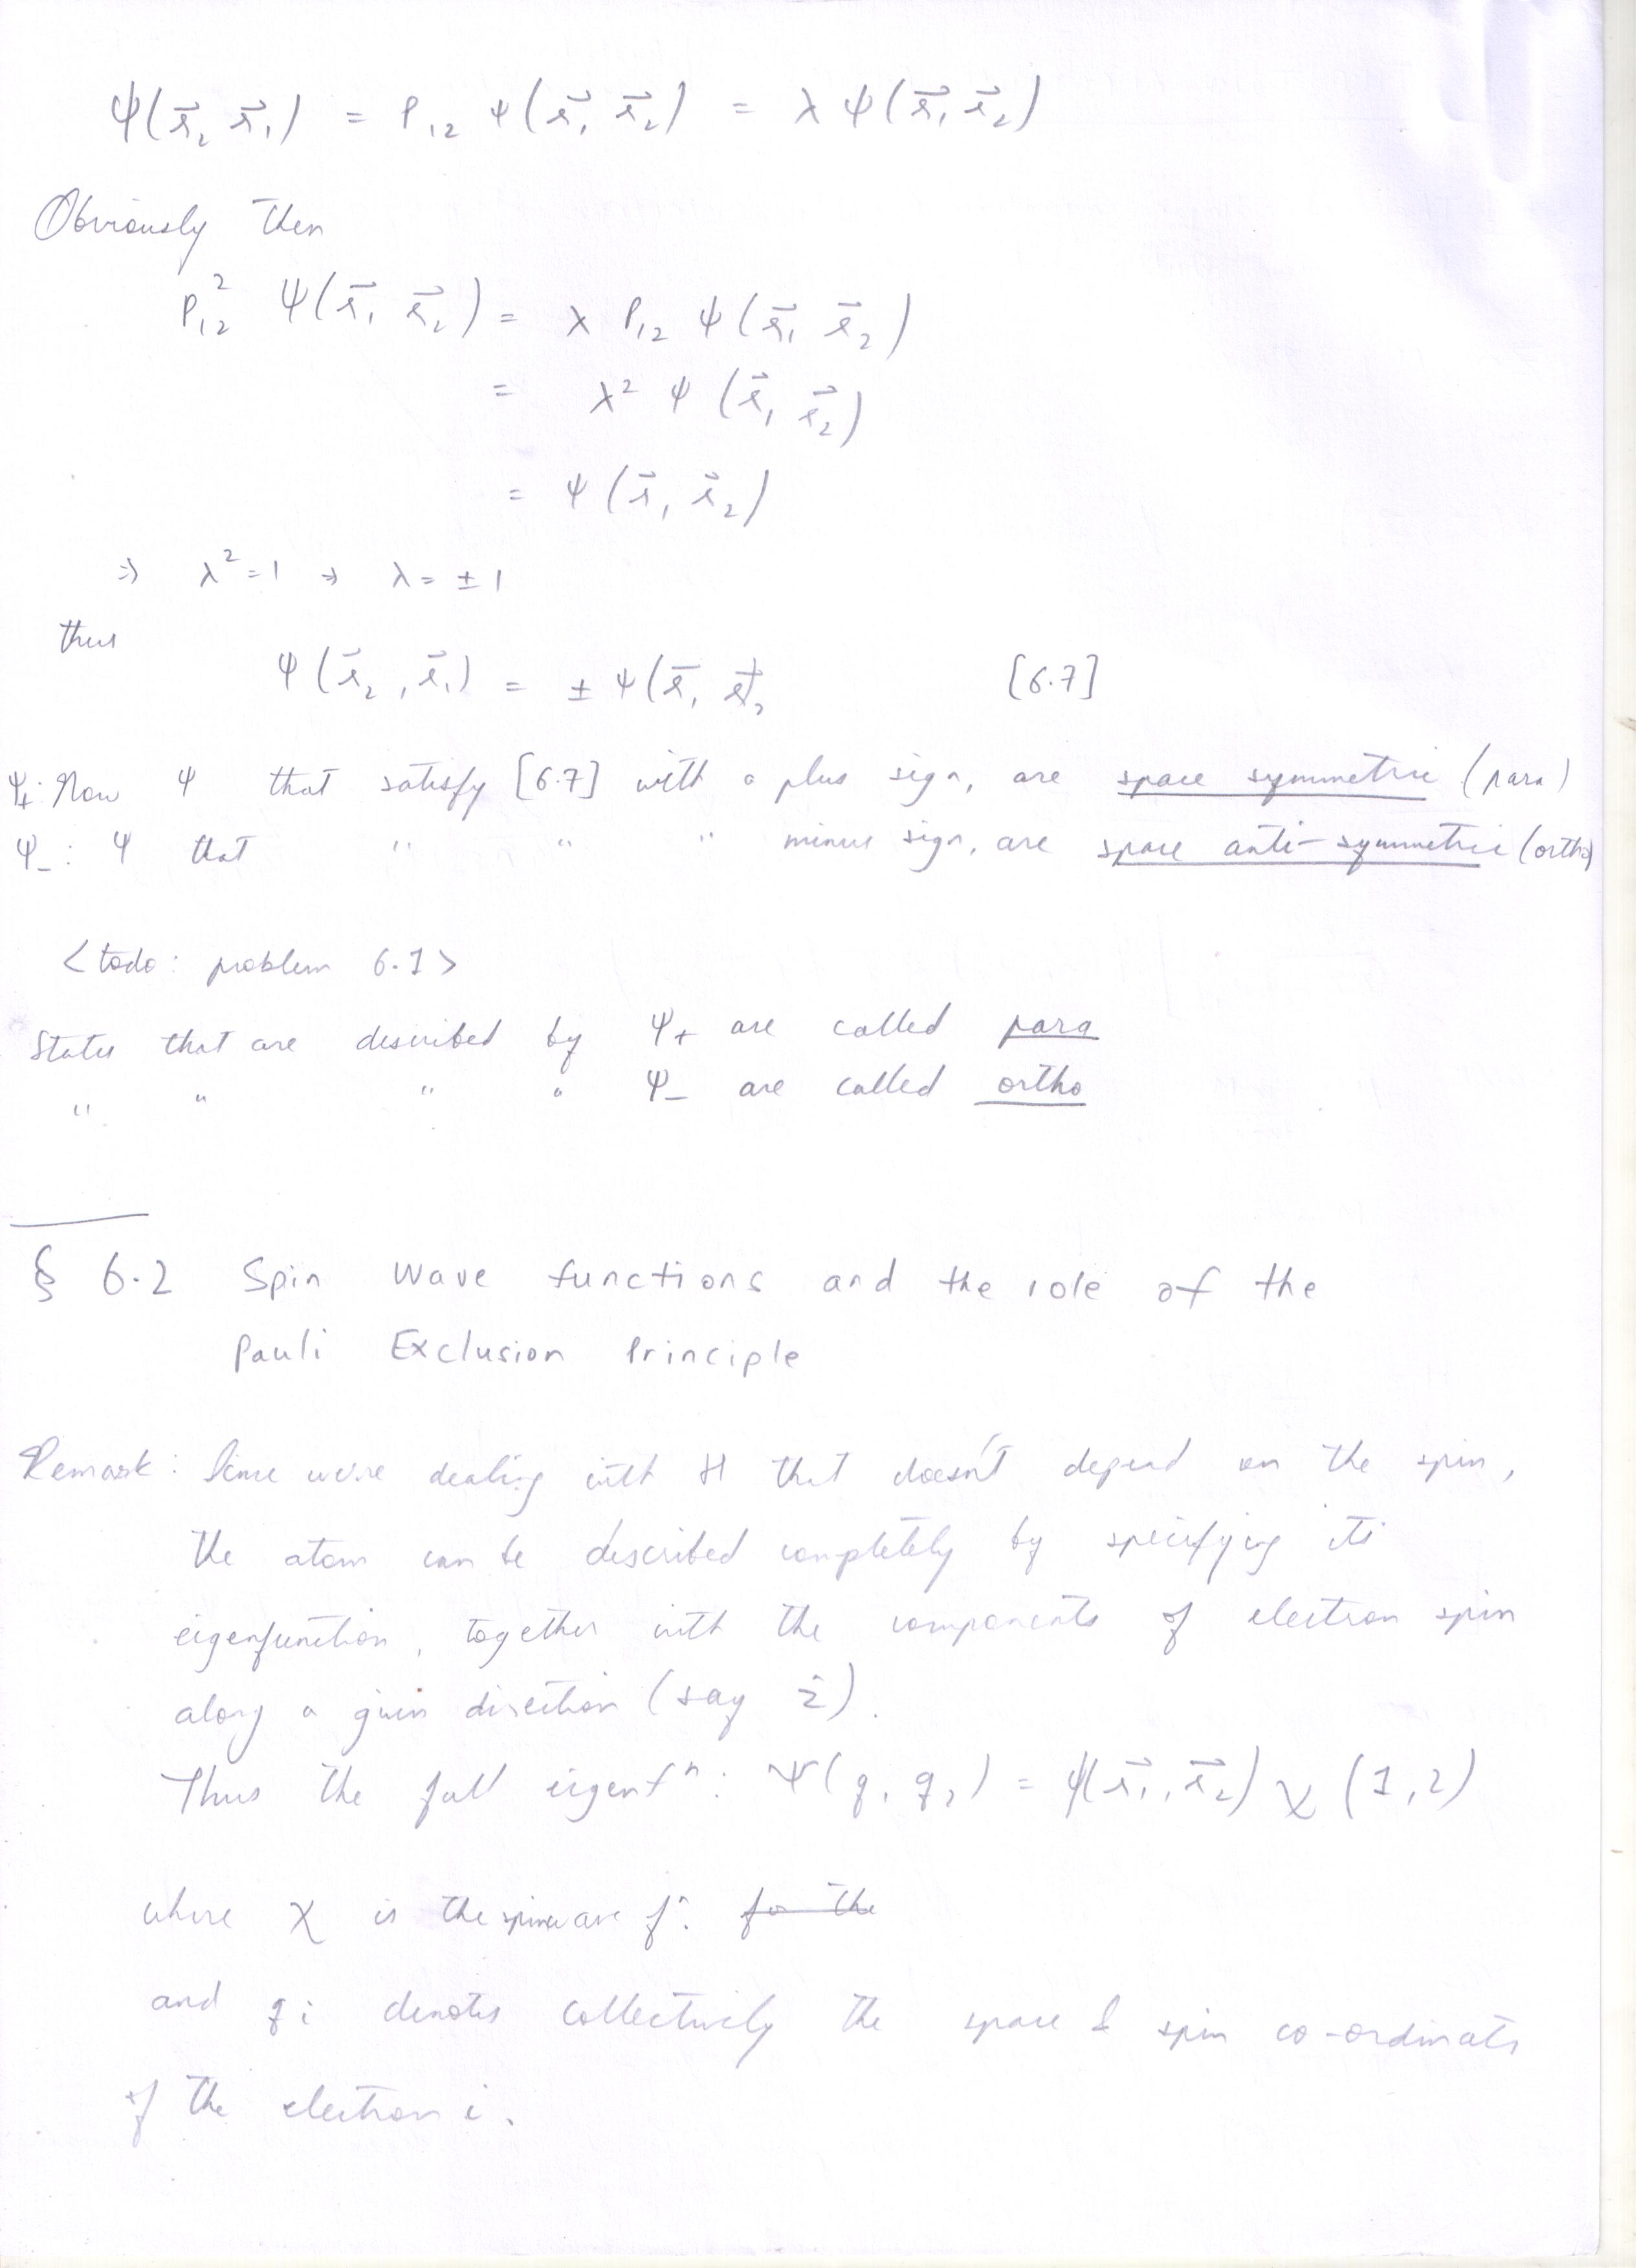 ψ(r⃗₂ r⃗₁) = P₁₂ ψ(r⃗₁ r⃗₂) = λ ψ(r⃗₁ r⃗₂)
Obviously then
P₁₂² ψ(r⃗₁ r⃗₂) = λ P₁₂ ψ(r⃗₁ r⃗₂)
= λ² ψ(r⃗₁ r⃗₂)
= ψ(r⃗₁ r⃗₂)
⇒ λ²=1 → λ = ±1
thus
ψ(r⃗₂, r⃗₁) = ± ψ(r⃗₁ r⃗₂ [6.7]
ψ₊: Now ψ that satisfy [6.7] with a plus sign, are space symmetric (para)
ψ₋: ψ that " " " minus sign, are space anti-symmetric (ortho)
<todo: problem 6.1>
States that are described by ψ₊ are called para
" " " " ψ₋ are called ortho
§ 6.2 Spin Wave functions and the role of the
Pauli Exclusion Principle
Remark: Since we're dealing with H that doesn't depend on the spin,
the atom can be described completely by specifying its
eigenfunction, together with the components of electron spin
along a given direction (say ẑ).
Thus the full eigenfⁿ: Ψ(q₁ q₂) = ψ(r⃗₁, r⃗₂) χ (1,2)
where χ is the spin wave fⁿ. for the
and qi denotes collectively the space & spin co-ordinates
of the electron i.